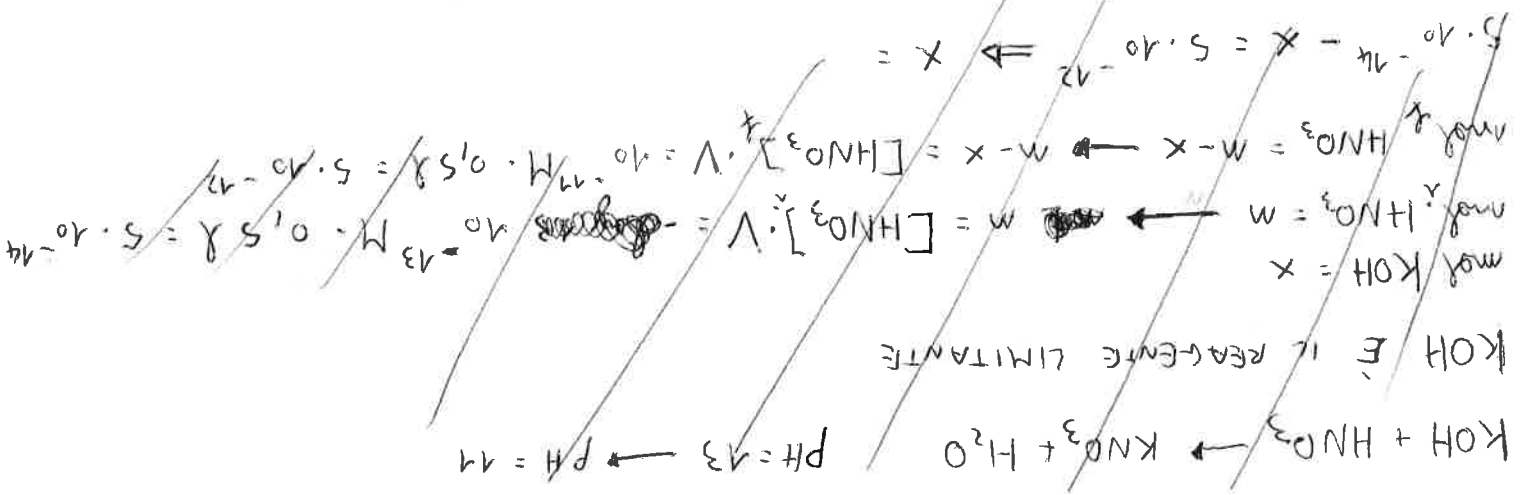 KOH + HNO₃ → KNO₃ + H₂O pH = 13 → pH = 11
KOH È IL REAGENTE LIMITANTE
mol KOH = x
mol HNO₃ᵢ = m → m = [HNO₃]ᵢ · V = 10⁻¹³ M · 0,5 l = 5 · 10⁻¹⁴
mol HNO₃f = m - x → m - x = [HNO₃]f · V = 10⁻¹¹ M · 0,5 l = 5 · 10⁻¹²
5 · 10⁻¹⁴ - x = 5 · 10⁻¹² ⇒ x =